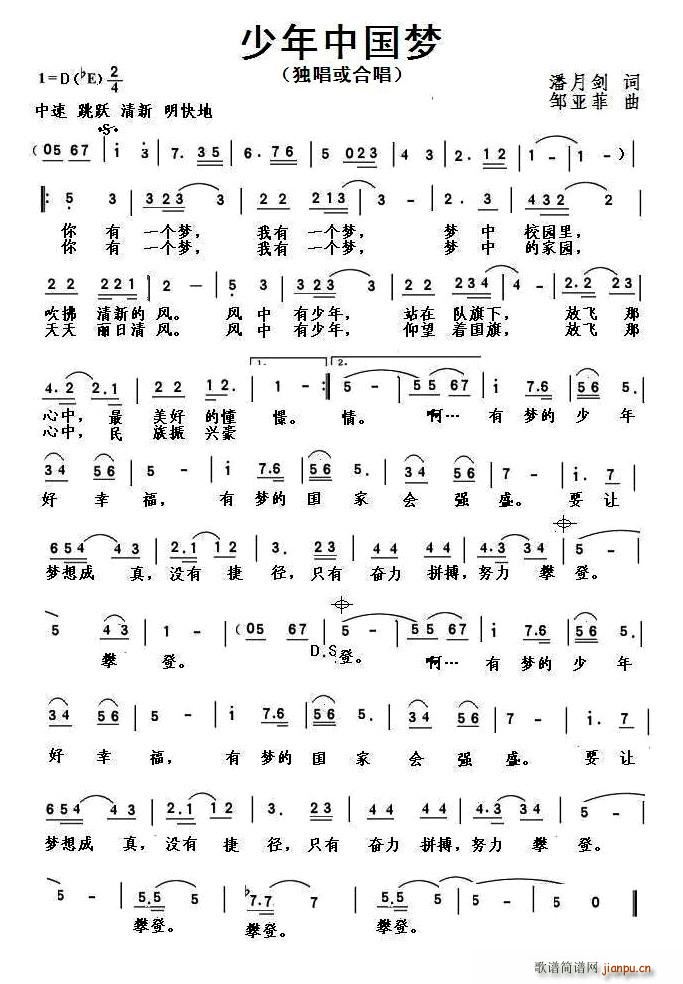 少年中国梦
（独唱或合唱）
1=D（♭E） 2/4
潘月剑 词
中速 跳跃 清新 明快地
邹亚菲 曲
（05 67 | i 3 | 7. 35 | 6. 76 | 5 023 | 4 3 | 2. 12 | 1 - | 1 - ）|
|: 5 3 | 323 3 | 2 2 | 213 3 | 2. 3 | 432 2 |
你 有 一个梦， 我有 一个梦， 梦 中 校园里，
你 有 一个梦， 我有 一个梦， 梦 中 的家园，
22 221 | 2 - | 5 3 | 12 3 | 4 2 | 22 234 | 5 5 |
吹拂 清新的 风。 风 中 有少年， 站在 队旗下， 放飞 那
天天 丽日清 风。 风 中 有少年， 仰望 着国旗， 放飞 那
1. 2.
4.2 2.1 | 22 2.1 | 1 - :| 5 - | 55 67 | i 7.6 | 56 5. |
心中， 最 美好 的憧 憬。 情。 啊… 有 梦的 少 年
心中， 民 族振 兴豪
34 56 | 5 - | i 7.6 | 56 5. | 34 56 | 5 - | i. 7 |
好 幸 福， 有 梦的 国 家 会 强 盛。 要 让
654 43 | 2.1 12 | 3. 23 | 44 44 | 4.3 34 | 5 - |
梦想成 真， 没有 捷 径， 只有 奋力 拼搏， 努力 攀 登。
5 43 | 1 - | （05 67 | 5 - | 55 67 | i 7.6 | 56 5. |
攀 登。 D.S 登。 啊… 有 梦的 少 年
34 56 | 5 - | i 7.6 | 56 5. | 34 56 | 5 - | i. 7 |
好 幸 福， 有 梦的 国 家 会 强 盛。 要 让
654 43 | 2.1 12 | 3. 23 | 44 44 | 4.3 34 | 5 - |
梦想成 真， 没有 捷 径， 只有 奋力 拼搏， 努力 攀 登。
5 - | 5.5 5 | ♭7.7 7 | 5.5 5 | 5 - | 5 - | 5 0 ||
攀登。 攀登。 攀登。
歌谱简谱网
jianpu.cn